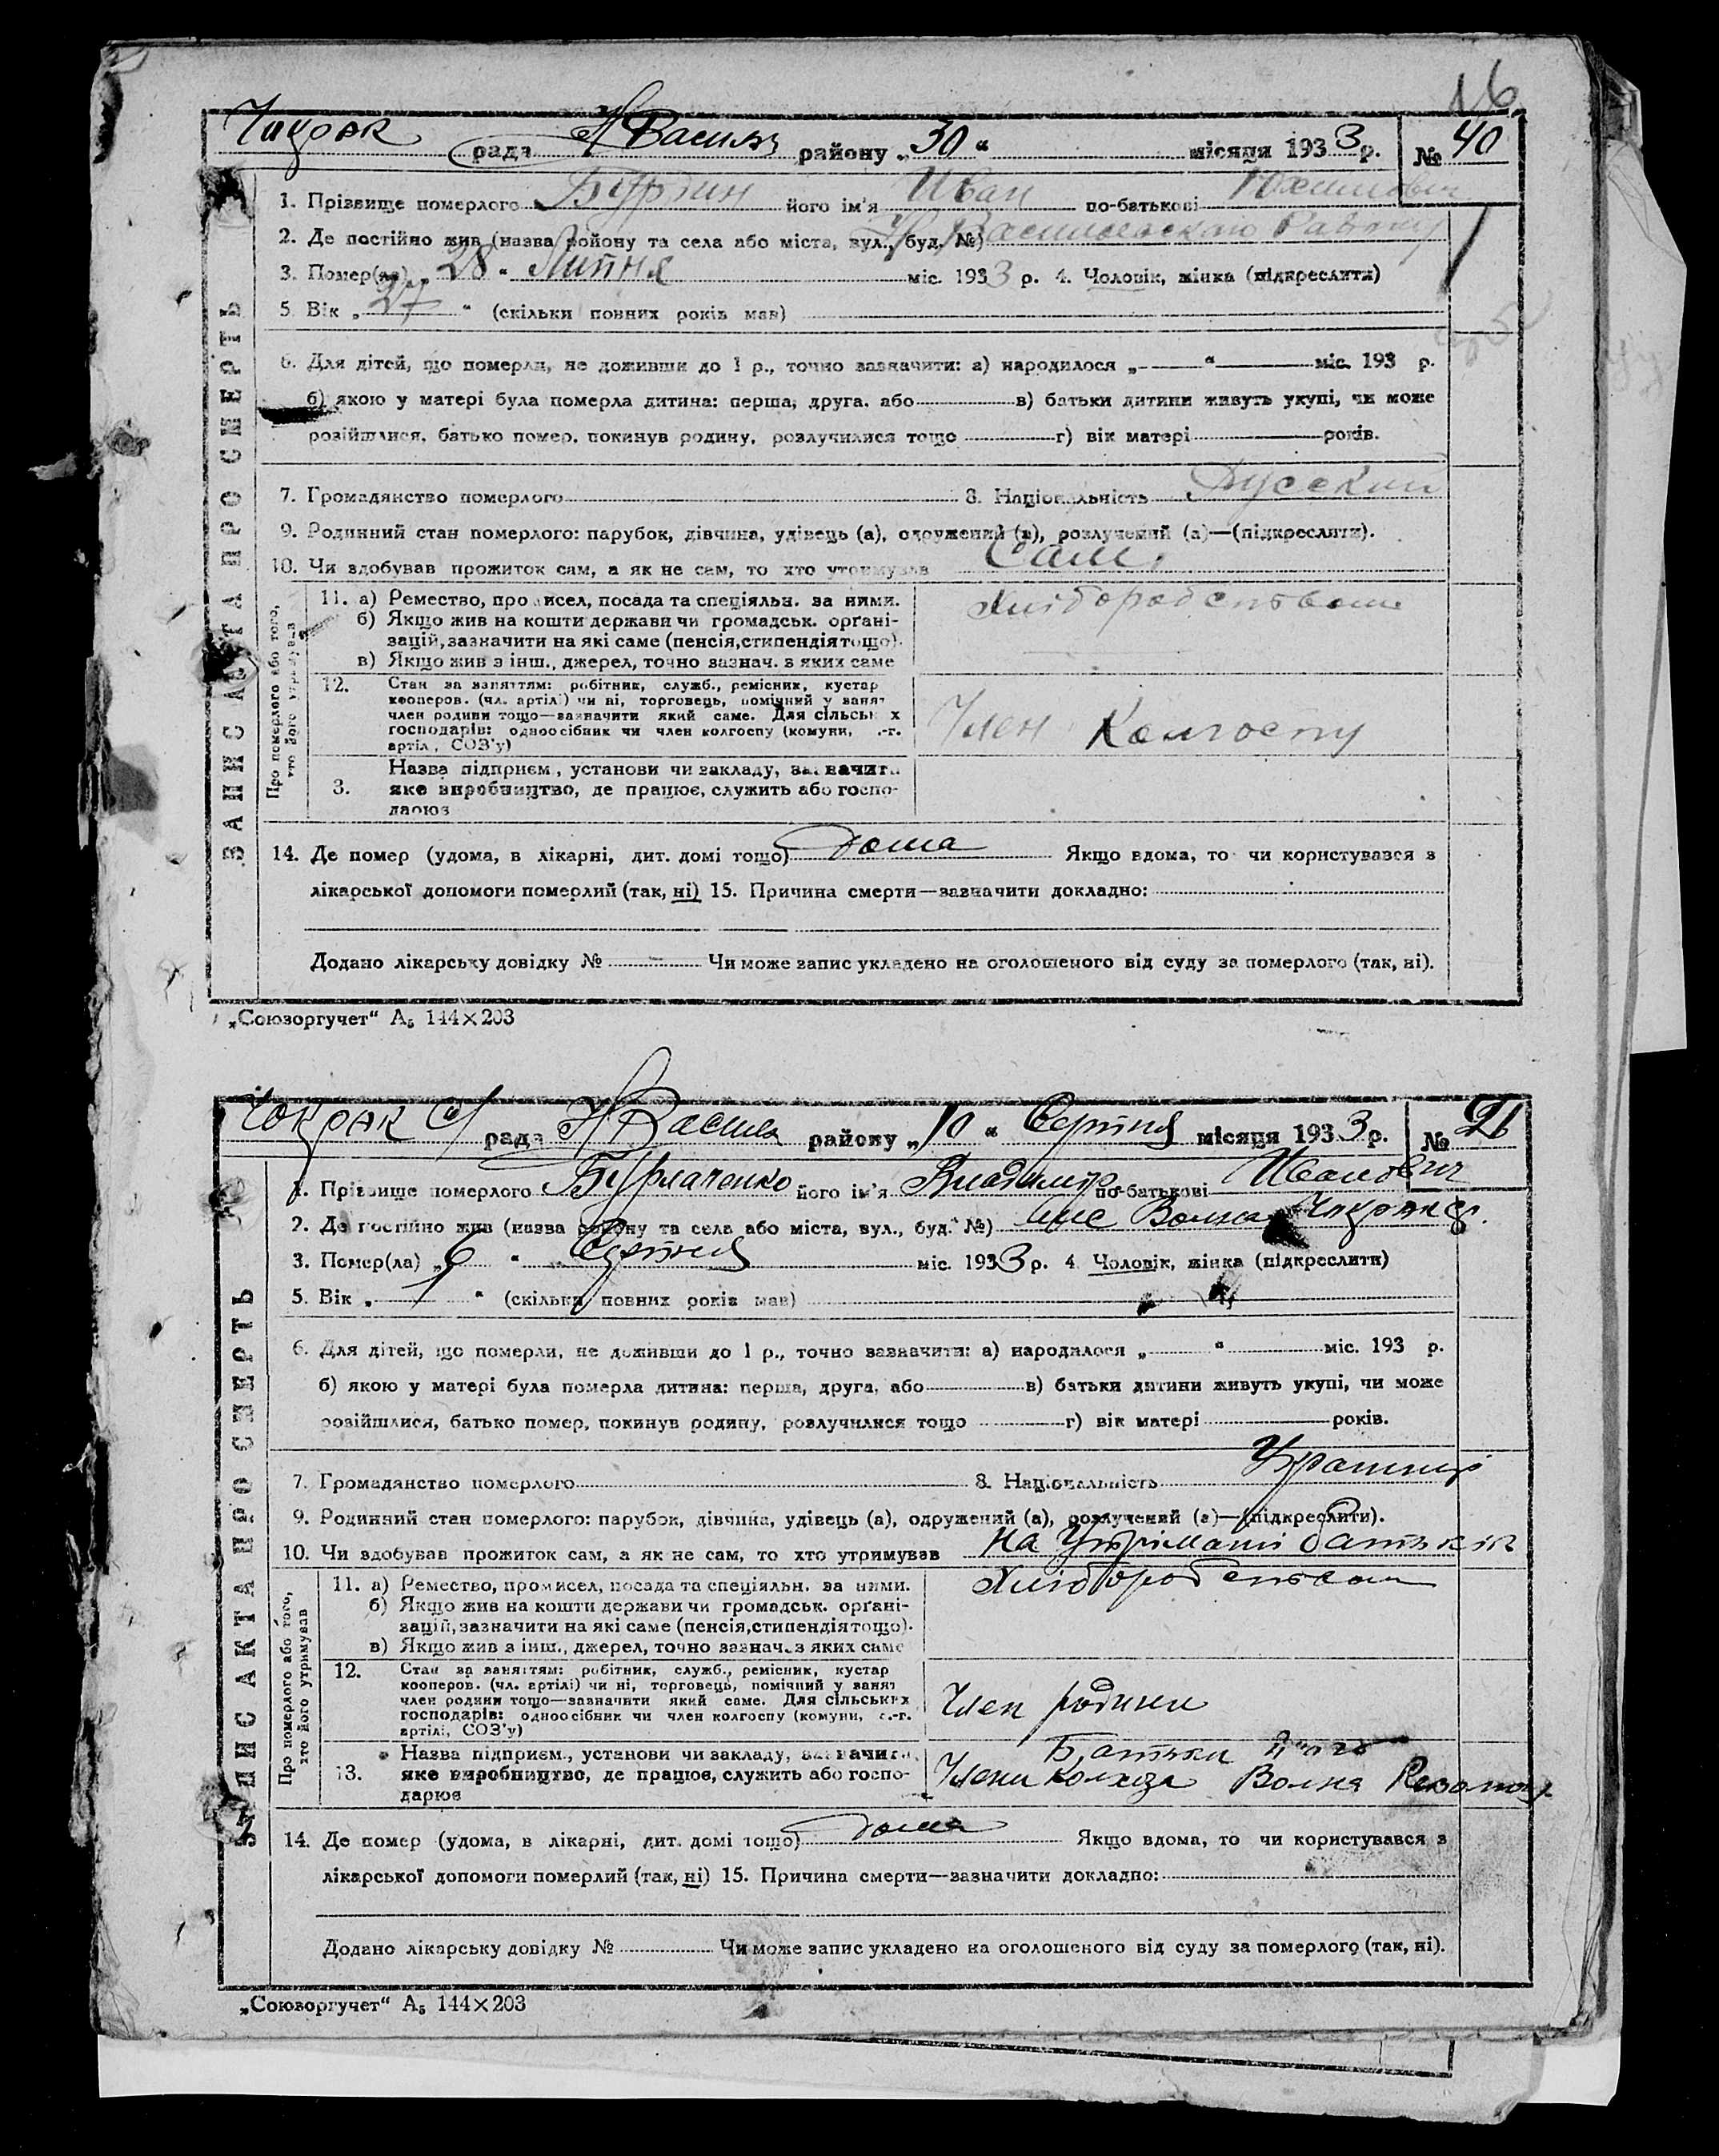 16
Чидрак рада Н Василь району „30“ місяця 1933 р. № 40
ЗАПИС АКТА ПРО СМЕРТЬ
1. Прізвище померлого Бурлин його ім'я Иван по-батькові
2. Де постійно жив (назва району та села або міста, вул., буд. №) Н Василевського Району
3. Помер(ла) „28“ Липня міс. 1933 р. 4. Чоловік, жінка (підкреслити)
5. Вік „27“ (скільки повних років мав)
6. Для дітей, що померли, не доживши до 1 р., точно зазначити: а) народилося „—“ міс. 193 р.
б) якою у матері була померла дитина: перша, друга, або в) батьки дитини живуть укупі, чи може
розійшлися, батько помер, покинув родину, розлучилися тощо г) вік матері років.
7. Громадянство померлого 8. Національність Русский
9. Родинний стан померлого: парубок, дівчина, удівець (а), одружений (а), розлучений (а)—(підкреслити).
10. Чи здобував прожиток сам, а як не сам, то хто утримував Сам.
Про померлого або того, хто його утримував
11. а) Ремество, промисел, посада та спеціяльн. за ними. Хліборобством
б) Якщо жив на кошти держави чи громадськ. орґані-
зацій, зазначити на які саме (пенсія, стипендія тощо).
в) Якщо жив з інш., джерел, точно зазнач. з яких саме
12. Стан за заняттям: робітник, служб., ремісник, кустар
кооперов. (чл. артілі) чи ні, торговець, помічний у занят
член родини тощо—зазначити який саме. Для сільських
господарів: одноосібник чи член колгоспу (комуни, с.-г. Член Колгоспу
артілі, СОЗ'у)
Назва підприєм., установи чи закладу, зазначити
3. яке виробництво, де працює, служить або госпо-
дарює
14. Де помер (удома, в лікарні, дит. домі тощо) дома Якщо вдома, то чи користувався з
лікарської допомоги померлий (так, ні) 15. Причина смерти—зазначити докладно:
Додано лікарську довідку № Чи може запис укладено на оголошеного від суду за померлого (так, ні).
„Союзоргучет“ А₅ 144×203
Чокрак С/ рада Н Василь району „10“ Серпня місяця 1933 р. № 21
ЗАПИС АКТА ПРО СМЕРТЬ
1. Прізвище померлого Бурлаченко його ім'я Владимир по-батькові Иванович
2. Де постійно жив (назва району та села або міста, вул., буд. №)
3. Помер(ла) „6“ Серпня міс. 1933 р. 4. Чоловік, жінка (підкреслити)
5. Вік „1“ (скільки повних років мав)
6. Для дітей, що померли, не доживши до 1 р., точно зазначити: а) народилося „ “ міс. 193 р.
б) якою у матері була померла дитина: перша, друга, або в) батьки дитини живуть укупі, чи може
розійшлися, батько помер, покинув родину, розлучилися тощо г) вік матері років.
7. Громадянство померлого 8. Національність
9. Родинний стан померлого: парубок, дівчина, удівець (а), одружений (а), розлучений (а)—(підкреслити).
10. Чи здобував прожиток сам, а як не сам, то хто утримував На Утрімани батьків
Про померлого або того, хто його утримував
11. а) Ремество, промисел, посада та спеціяльн. за ними. Хліборобством
б) Якщо жив на кошти держави чи громадськ. орґані-
зацій, зазначити на які саме (пенсія, стипендія тощо).
в) Якщо жив з інш., джерел, точно зазнач. з яких саме
12. Стан за заняттям: робітник, служб., ремісник, кустар
кооперов. (чл. артілі) чи ні, торговець, помічний у занят
член родини тощо—зазначити який саме. Для сільських Член родини
господарів: одноосібник чи член колгоспу (комуни, с.-г.
артілі, СОЗ'у)
Назва підприєм., установи чи закладу, зазначити Батьки
13. яке виробництво, де працює, служить або госпо- Члени колхоза Волна Револ
дарює
14. Де помер (удома, в лікарні, дит. домі тощо) дома Якщо вдома, то чи користувався з
лікарської допомоги померлий (так, ні) 15. Причина смерти—зазначити докладно:
Додано лікарську довідку № Чи може запис укладено на оголошеного від суду за померлого (так, ні).
„Союзоргучет“ А₅ 144×203